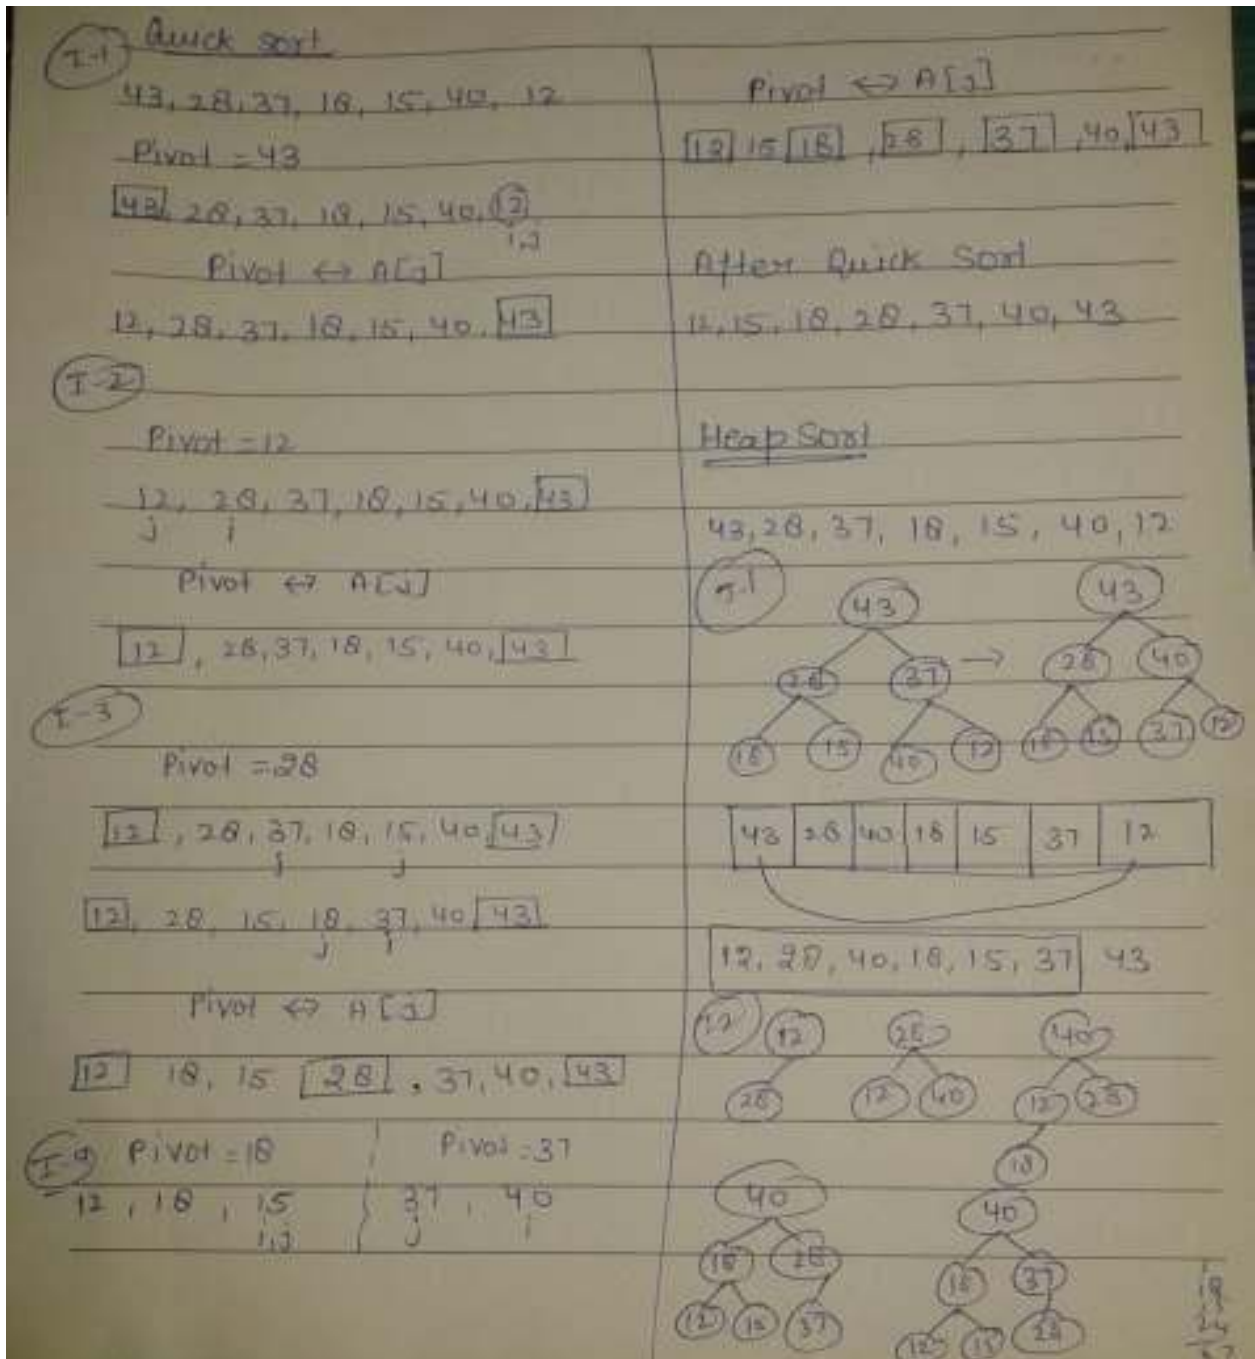 I-1 Quick sort
43, 28, 37, 18, 15, 40, 12
Pivot = 43
43, 28, 37, 18, 15, 40, 12
i,j
Pivot ↔ A[j]
12, 28, 37, 18, 15, 40, 43
I-2
Pivot = 12
12, 28, 37, 18, 15, 40, 43
j i
Pivot ↔ A[j]
12, 28, 37, 18, 15, 40, 43
I-3
Pivot = 28
12, 28, 37, 18, 15, 40, 43
i j
12, 28, 15, 18, 37, 40 43
j i
Pivot ↔ A[j]
12 18, 15 28, 37, 40, 43
Pivot = 18
12, 18, 15
i,j
Pivot = 37
37, 40
j i
Pivot ↔ A[j]
12 15 18, 28, 37, 40, 43
After Quick Sort
12, 15, 18, 28, 37, 40, 43
Heap Sort
43, 28, 37, 18, 15, 40, 12
I-1
43 43
28 37 → 28 40
18 15 40 12 18 15 37 12
43 28 40 18 15 37 12
12, 28, 40, 18, 15, 37 43
12 28 40
28 12 40 12 28
18
40 40
18 28 18 37
12 15 37 12 15 28